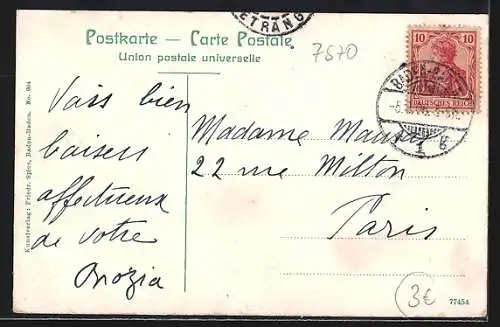 ETRANG
Postkarte — Carte Postale
Union postale universelle
7570
10 10
DEUTSCHES REICH
BADEN-B
Vais bien
baisers
affectueux
de votre
Madame
22 rue Milton
Paris
Kunstverlag: Friedr. Spies, Baden-Baden. No. 604
77454
3€